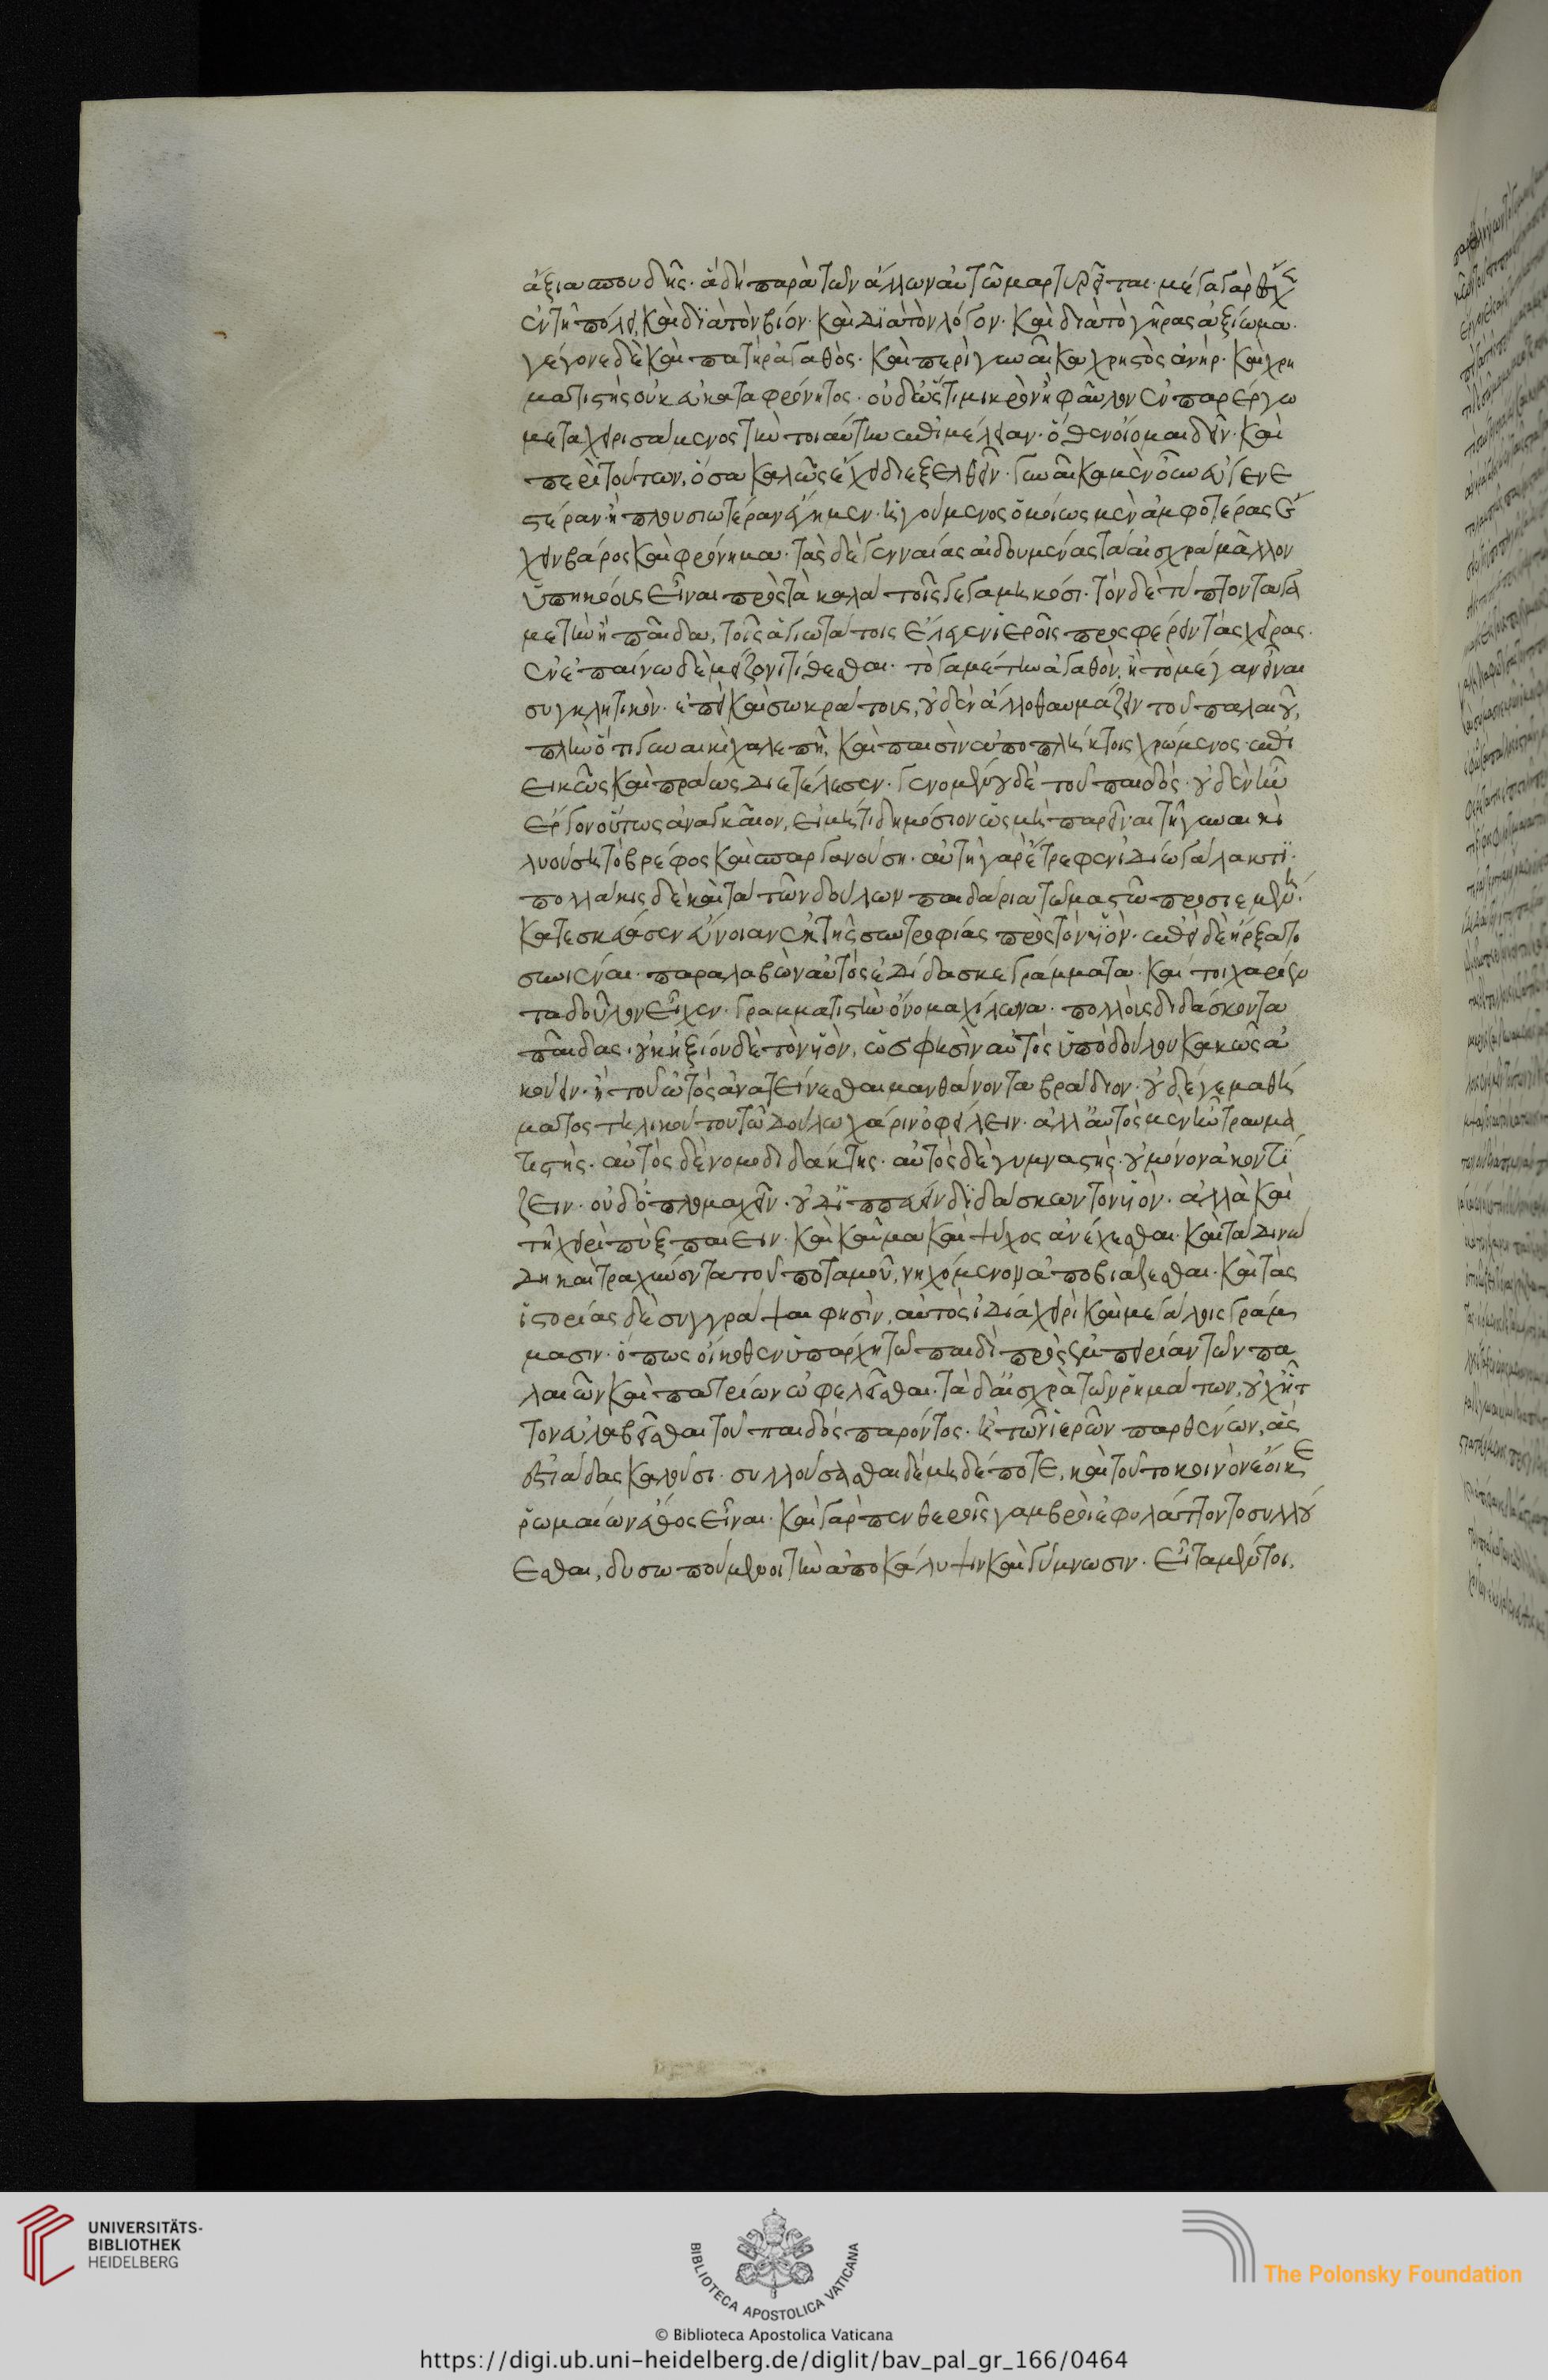 ἄξια σπουδῆς· ἃ δὴ παρὰ τῶν ἄλλων αὐτῶ μαρτυρεῖται· μέγα γὰρ εἶχεν
ἐν τῆ πόλει, καὶ διὰ τὸν βίον· καὶ διὰ τὸν λόγον· καὶ διὰ τὸ γῆρας ἀξίωμα·
γέγονε δὲ καὶ πατὴρ ἀγαθὸς· καὶ περὶ γυναῖκα χρηστὸς ἀνήρ· καὶ χρη
ματιστὴς οὐκ εὐκαταφρόνητος· οὐδ᾽ ὥς τι μικρὸν ἢ φαῦλον ἐν παρέργω
μεταχειρισάμενος τὴν τοιαύτην ἐπιμέλειαν· ὅθεν οἴομαι δεῖν· καὶ
περὶ τούτων, ὅσα καλῶς ἔχει διεξελθεῖν· γυναῖκα μὲν οὖν εὐγενε
στέραν ἢ πλουσιωτέραν ἔγημεν· ἡγούμενος ὁμοίως μὲν ἀμφοτέρας ἔ
χειν βάρος καὶ φρόνημα· τὰς δὲ γενναίας αἰδουμένας τὰ αἰσχρὰ μᾶλλον
ὑπηκόους εἶναι πρὸς τὰ καλὰ τοῖς γεγαμηκόσι· τὸν δὲ τύπτοντα γα
μετὴν ἢ παῖδα, τοῖς ἁγιωτάτοις ἔλεγεν ἱεροῖς προσφέρειν τὰς χεῖρας·
ἐν ἐπαίνω δὲ μείζονι τίθεσθαι· τὸ γαμέτην ἀγαθὸν, ἢ τὸ μέγαν εἶναι
συγκλητικὸν· ἐπεὶ καὶ σωκράτους, οὐδὲν ἄλλο θαυμάζειν τοῦ παλαιοῦ,
πλὴν ὅτι γυναικὶ χαλεπῆ, καὶ παισὶν ἀποπλήκτοις χρώμενος ἐπι
εικῶς καὶ πράως διετέλεσεν· γενομένου δὲ τοῦ παιδὸς· οὐδὲν ἦν
ἔργον οὕτως ἀναγκαῖον, εἰ μή τι δημόσιον ὡς μὴ παρεῖναι τῆ γυναικὶ
λουούση τὸ βρέφος καὶ σπαργανούση· αὐτὴ γὰρ ἔτρεφεν ἰδίω γάλακτι·
πολλάκις δὲ καὶ τὰ τῶν δούλων παιδάρια τῶ μαστῶ προσιεμένη·
κατεσκεύασεν εὔνοιαν ἐκ τῆς συντροφίας πρὸς τὸν υἱὸν· ἐπεὶ δὲ ἤρξατο
συνιέναι· παραλαβὼν αὐτὸς ἐδίδασκε γράμματα· καί τοι χαρίεν
τα δοῦλον εἶχεν· γραμματιστὴν ὄνομα χίλωνα· πολλοὺς διδάσκοντα
παῖδας· οὐκ ἠξίου δὲ τὸν υἱὸν, ὥς φησὶν αὐτὸς ὑπὸ δούλου κακῶς ἀ
κούειν· ἢ τοῦ ὠτὸς ἀνατείνεσθαι μανθάνοντα βράδιον· οὐδέ γε μαθή
ματος τηλικούτου τῶ δούλω χάριν ὀφείλειν· ἀλλ᾽ αὐτὸς μὲν ἦν γραμμα
τιστὴς· αὐτὸς δὲ νομοδιδάκτης· αὐτὸς δὲ γυμναστὴς· οὐ μόνον ἀκοντί
ζειν· οὐδ᾽ ὁπλομαχεῖν· οὐδ᾽ ἱππεύειν διδάσκων τὸν υἱὸν· ἀλλὰ καὶ
τῆ χειρὶ πὺξ παίειν· καὶ καῦμα καὶ ψύχος ἀνέχεσθαι· καὶ τὰ δινώ
δη καὶ τραχύνοντα τοῦ ποταμοῦ, νηχόμενον ἀποβιάζεσθαι· καὶ τὰς
ἱστορίας δὲ συγγράψαι φησὶν, αὐτὸς ἰδία χειρὶ καὶ μεγάλοις γράμ
μασιν· ὅπως οἴκοθεν ὑπάρχη τῶ παιδὶ πρὸς ἐμπειρίαν τῶν πα
λαιῶν καὶ πατρίων ὠφελεῖσθαι· τὰ δ᾽ αἰσχρὰ τῶν ῥημάτων, οὐχ ἧτ
τον εὐλαβεῖσθαι τοῦ παιδὸς παρόντος· ἢ τῶν ἱερῶν παρθένων, ἃς
ἑστιάδας καλοῦσι· συλλούσασθαι δὲ μηδέποτε, καὶ τοῦτο κοινὸν ἔοικε
ῥωμαίων ἔθος εἶναι· καὶ γὰρ πενθεροῖς γαμβροὶ ἐφυλάττοντο συλλού
εσθαι, δυσωπούμενοι τὴν ἀποκάλυψιν καὶ γύμνωσιν· εἶτα μέντοι,
UNIVERSITÄTS-
BIBLIOTHEK
HEIDELBERG
BIBLIOTECA APOSTOLICA VATICANA
The Polonsky Foundation
© Biblioteca Apostolica Vaticana
https://digi.ub.uni-heidelberg.de/diglit/bav_pal_gr_166/0464